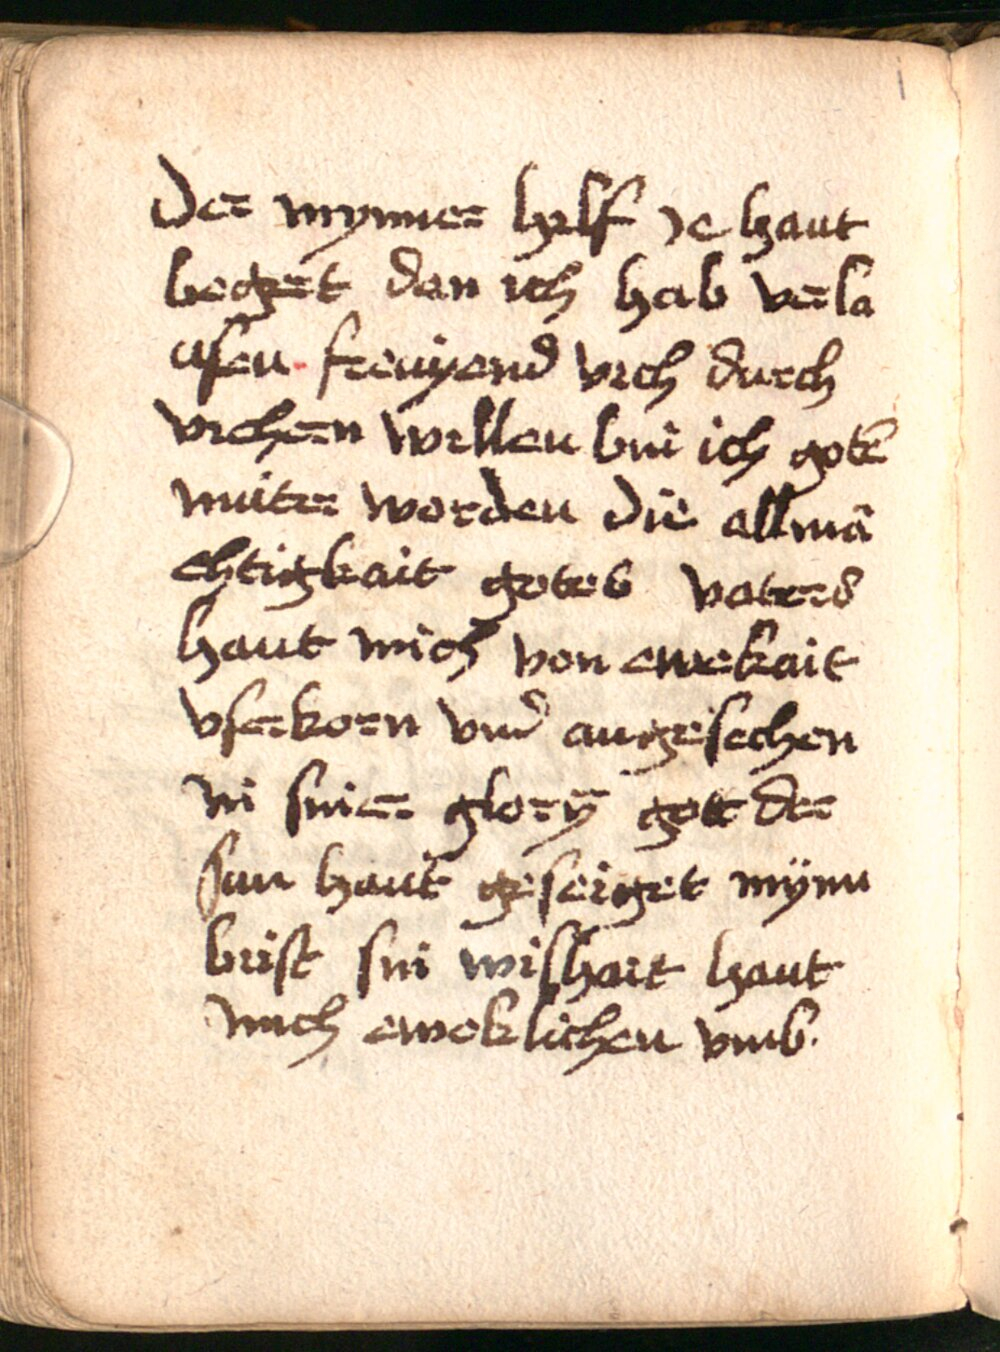 Der mynner hylf ye haut
begert den ich hab verla
ssen. freuyend vich durch
vichern willen bin ich gotes
mutter worden die allmä
chtigkait gotes vaters
haut mich von ewekait
vserkorn vnd angesechen
in siner glory gott der
sun haut geseiget mynn
brist sin wishait haut
mich eweklichen vmb.